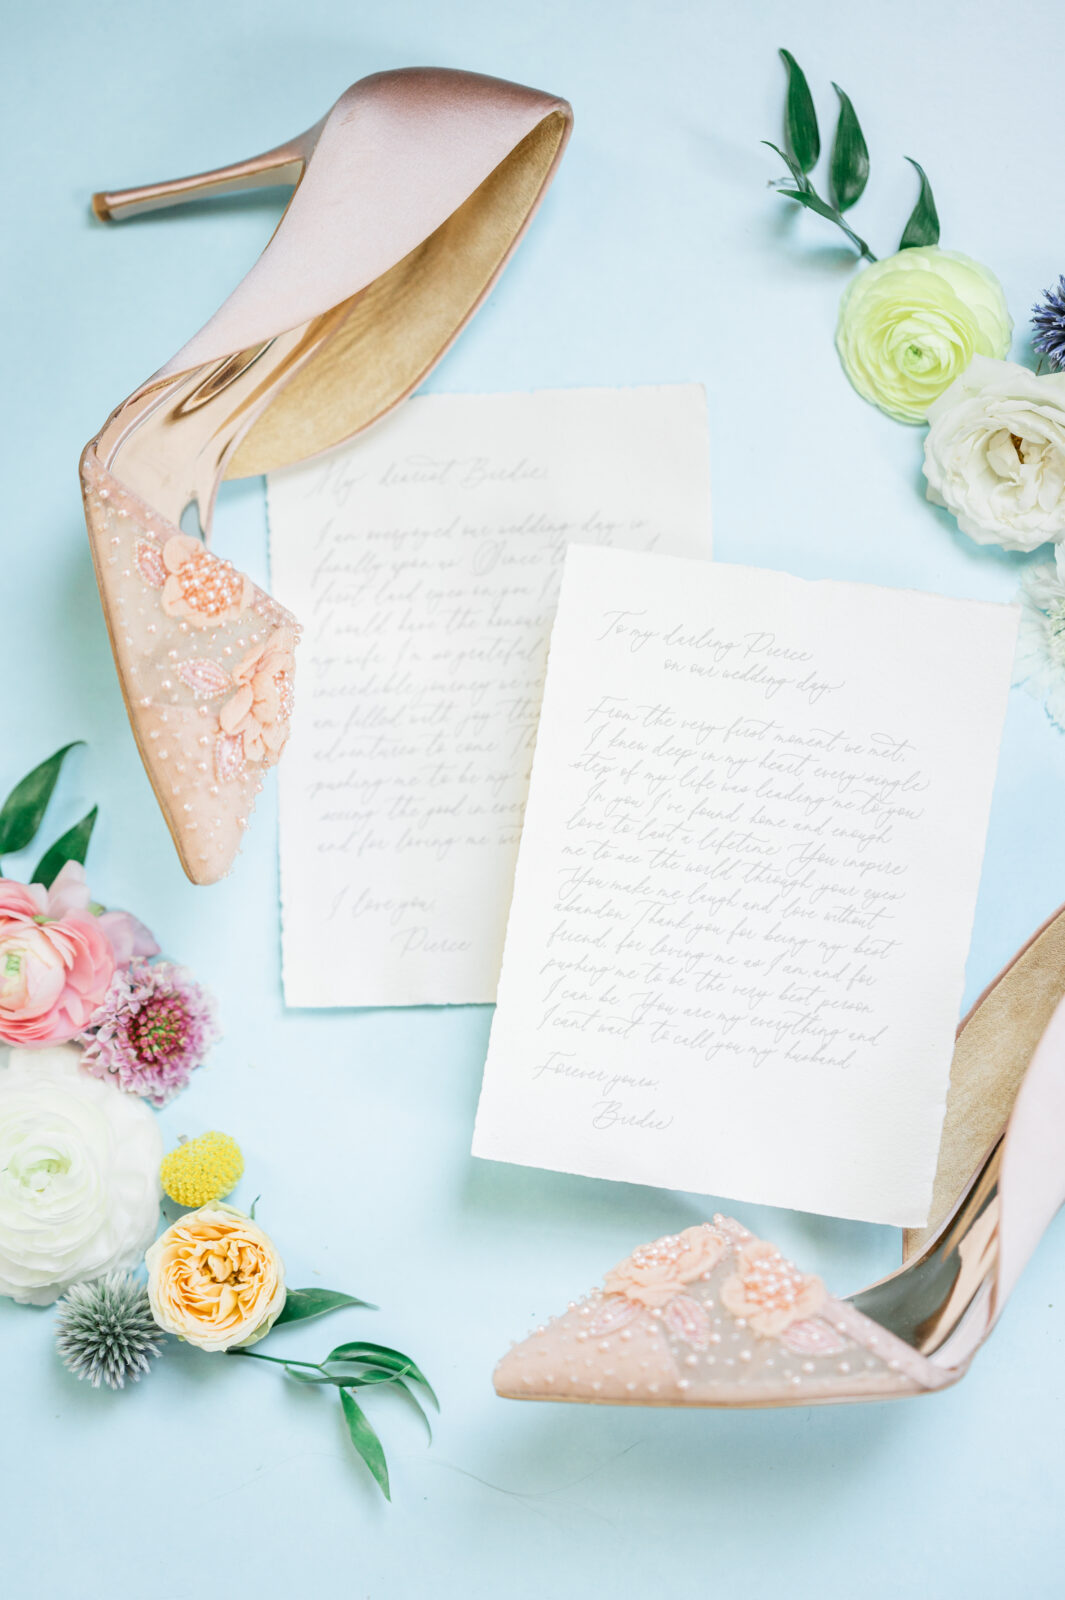 My dearest Birdie,
I am overjoyed our wedding day is
finally upon us. Since the
first laid eyes on you I
I would have the honour
my wife. I'm so grateful
incredible journey we've
am filled with joy
adventures to come.
pushing me to be my
seeing the good in
and for loving me
I love you,
Pierce
To my darling Pierce
on our wedding day
From the very first moment we met,
I knew deep in my heart, every single
step of my life was leading me to you
In you I've found home and enough
love to last a lifetime. You inspire
me to see the world through your eyes
You make me laugh and love without
abandon. Thank you for being my best
friend, for loving me as I am, and for
pushing me to be the very best person
I can be. You are my everything and
I cant wait to call you my husband
Forever yours,
Birdie